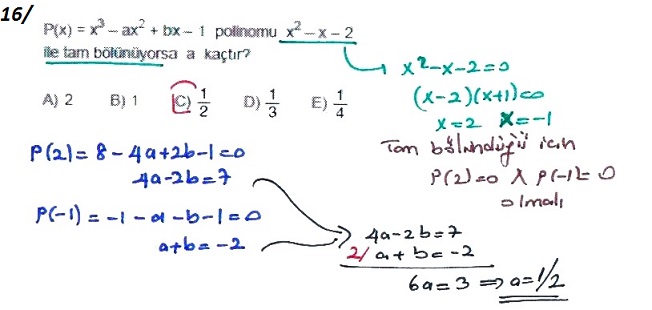 16/
P(x) = x³ – ax² + bx – 1 polinomu x² – x – 2
ile tam bölünüyorsa a kaçtır?
A) 2 B) 1 C) 1/2 D) 1/3 E) 1/4
x²-x-2=0
(x-2)(x+1)=0
x=2 x=-1
Tam bölündüğü için
P(2)=0 ∧ P(-1)=0
olmalı
P(2)= 8-4a+2b-1=0
4a-2b=7
P(-1)= -1-a-b-1=0
a+b=-2
4a-2b=7
2/ a+b=-2
6a=3 ⇒ a=1/2